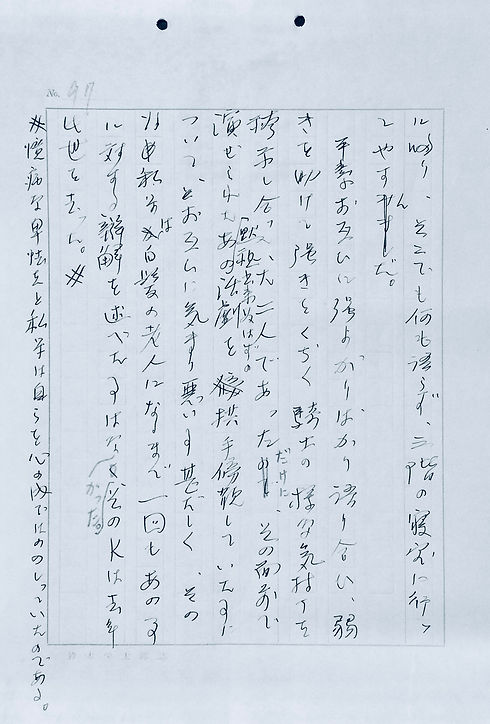 No. 97
に帰り、そこでも何も語らず、三階の寝室に行つ
やすんだ。
平素お互いに強がりばかり語り合い、弱
きを助けて強きをくぢく騎士の様な気持ちを
誇示し合った二人であっただけに、その面前で
演ぜられたあの活劇を拱手傍観していた事に
ついて、お互いに気まり悪い事甚だしく、その
私等は白髪の老人になるまで一回もあの事
に対する辯解を述べた事はなかった。そのKは去年
此世を去った。
臆病な卑怯者と私等は自らを心の内でののしっていたのである。